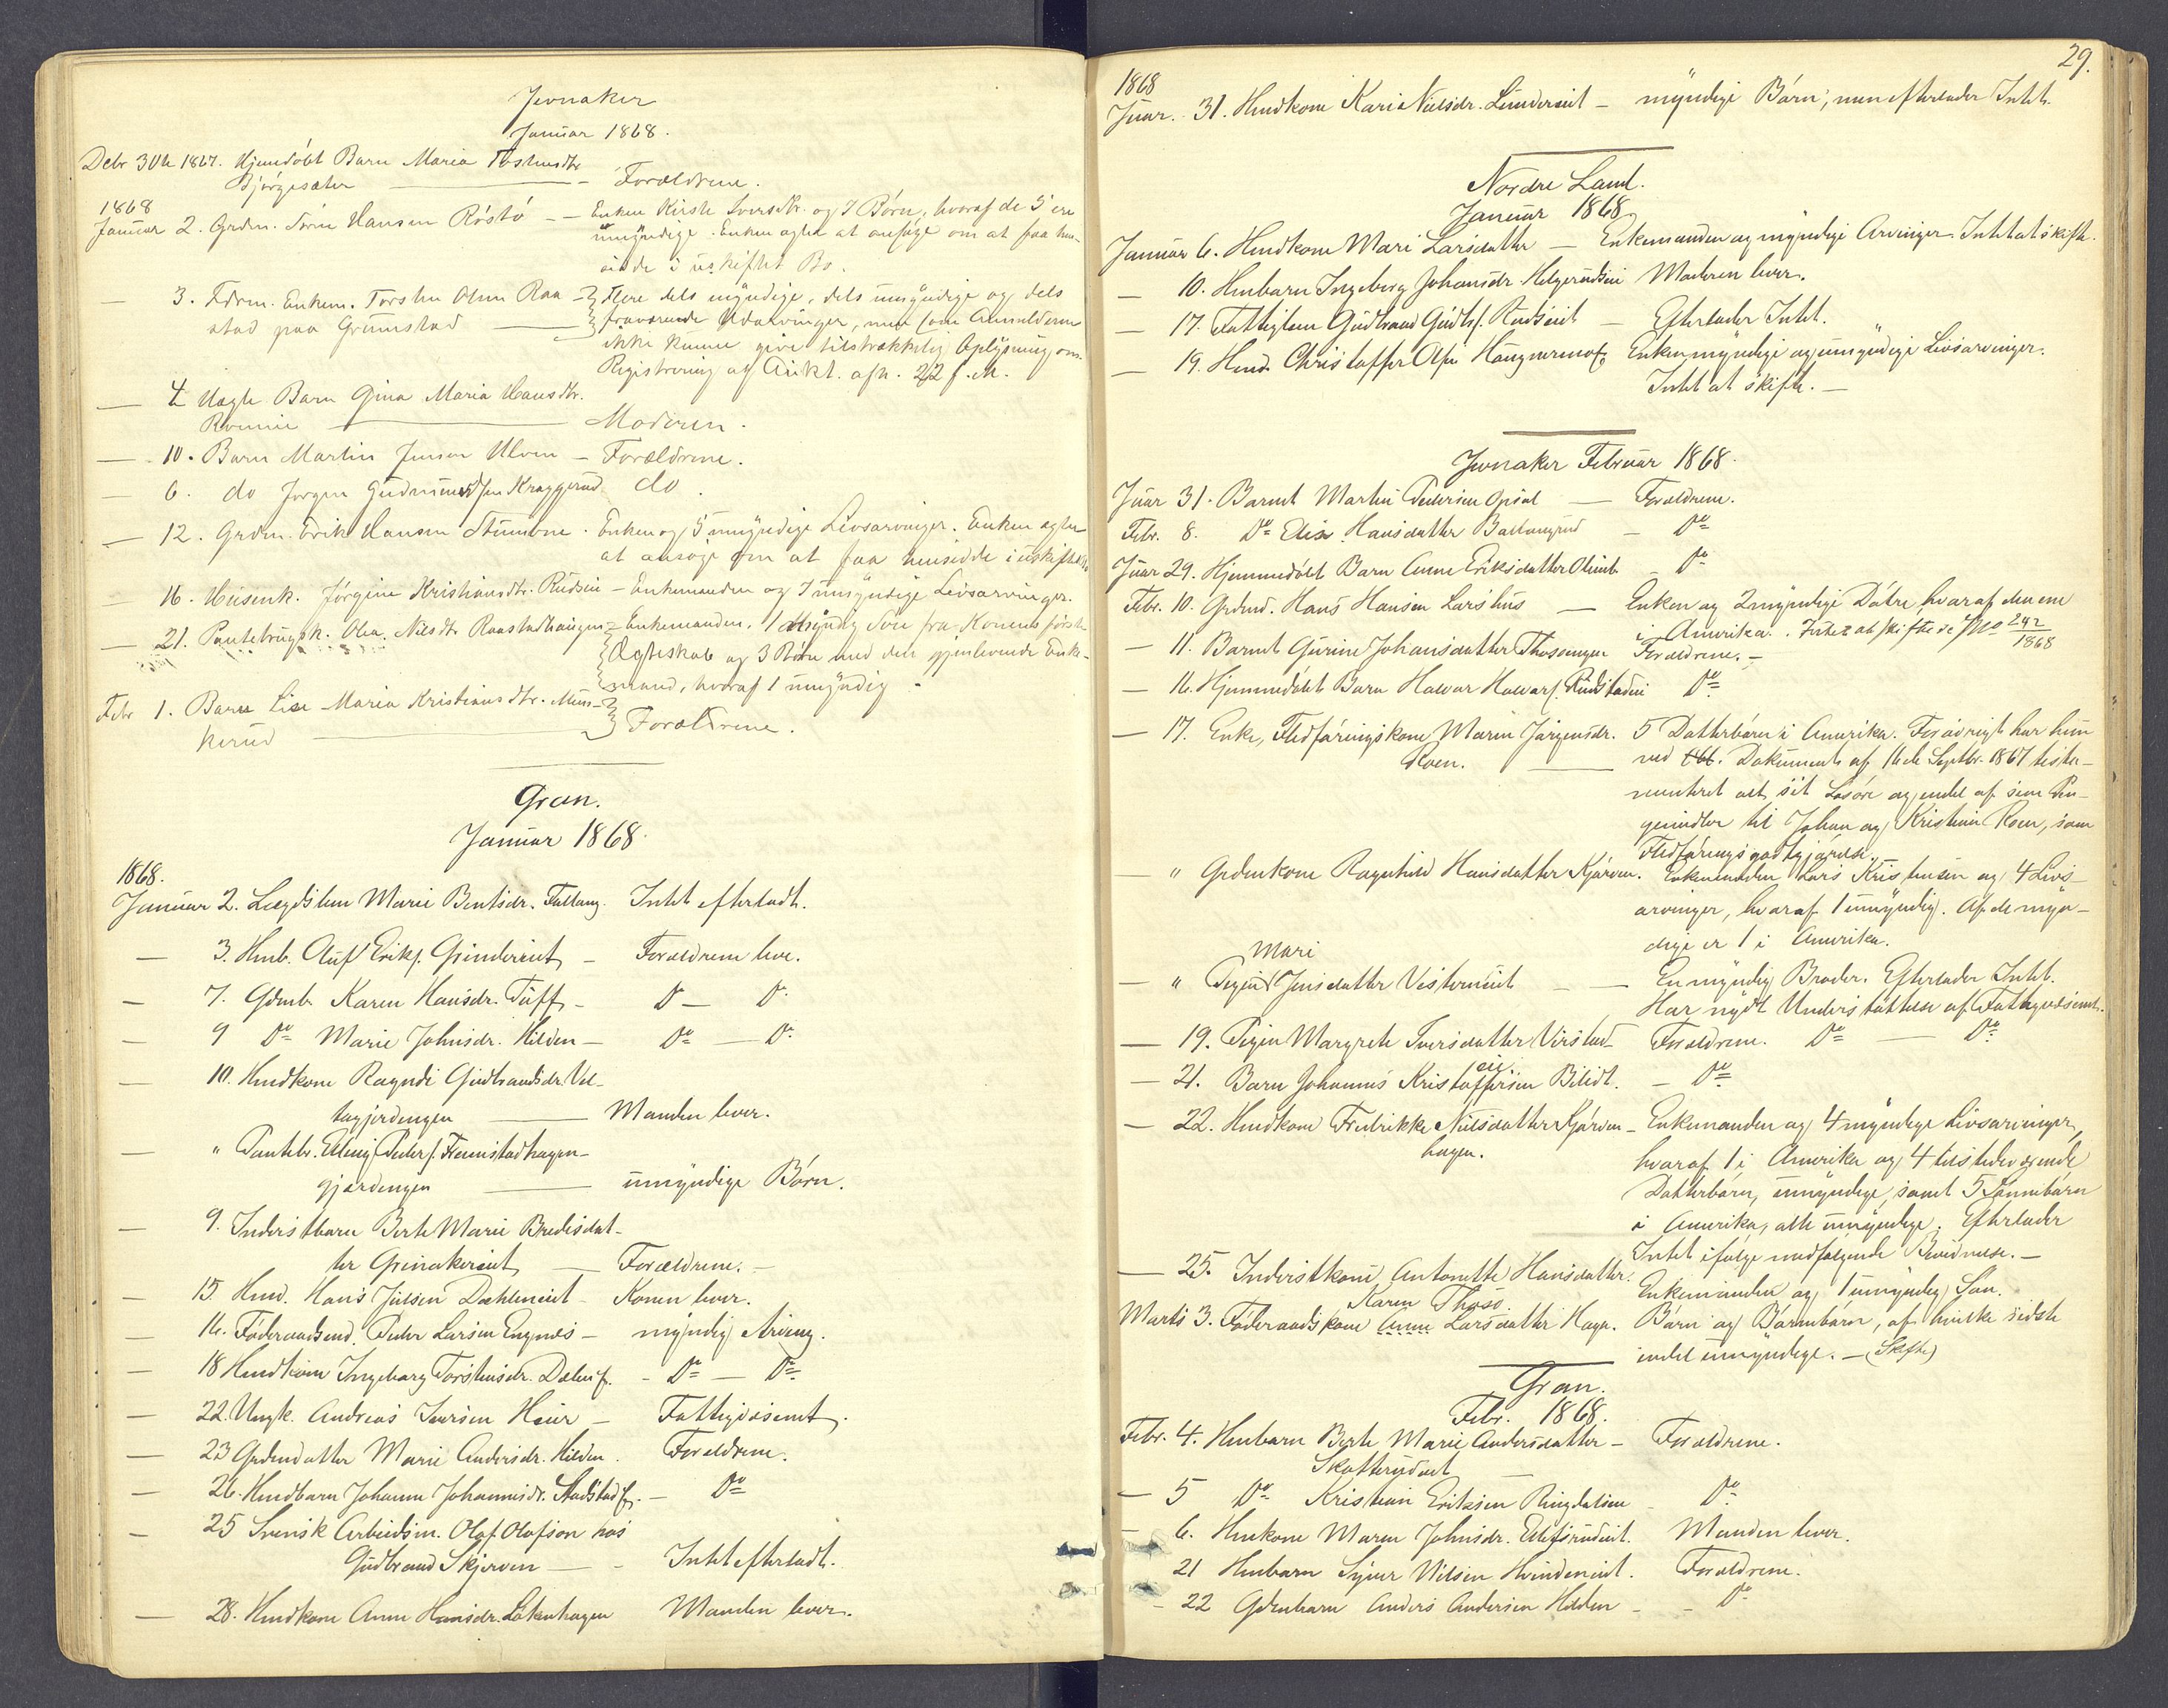 Jevnaker
Januar 1868.
Debr 30te 1867. Hjemdöbt Barn Maria Torstensdtr
Bjørgesæter — Forældrene.
1868
Januar 2. Grdm. Hansen Röstö — Enken Kirsti Iversdtr. og 7 Börn, hvoraf de 5 ere
umyndige. Enken agter at ansöge om at faa hen-
sidde i uskiftet Bo.
— 3. Enkem. Torsten Olsen Raa- Flere dels myndige, dels umyndige og dels
stad paa Grimstad — fraværende Udarvinger, men som Anmelderen
ikke kunne give tilstrækkelig Oplysning om.
Registrering og Aukt. afh. 22/2 f. M.
— 4 Uægte Barn Gina Maria Hansdtr.
— Moderen.
— 10. Barn Martin Jensen Ulven — Forældrene.
— 6. do Jørgen Gudmundsen Kraggerud do.
— 12. Grdm. Erik Hansen Stumbne. Enken og 5 umyndige Livsarvinger. Enken agter
at ansöge om at faa hensidde i uskiftet Bo
— 16. Husmk. Jörgine Kristiansdtr. Rudsei — Enkemanden og 7 umyndige Livsarvinger.
— 21. Pantebrugsk. Olea Nilsdtr Raastadhaugen — Enkemanden, 1 Myndig Sön fra Konens förste
Ægteskab og 3 Börn med den gjenlevende Enke-
mand, hvoraf 1 umyndig
Febr 1. Barn Lise Maria Kristiansdtr. Mus-
kerud — Forældrene.
Gran.
Januar 1868.
1868.
Januar 2. Lægdslem Marie Bentsdr. Fallang. Intet efterladt.
— 3. Hmb. Oluf Eriks. Grindereiet — Forældrene leve.
— 7. Gdmb. Karen Hansdr. Tuff — Do — Do
— 9 Do Marie Johnsdr. Hilden — Do — Do
— 10. Hmdkone Ragndi Gudbrandsdr. Vel-
tagjordengen — Manden lever.
— " Pantebr. Elling Peders. Framstadhagen-
gjordengen — umyndige Börn.
— 9. Inderstbarn Berte Marie Bredesdat-
ter Grinakereiet — Forældrene. —
— 15 Hmd. Hans Julsen Dæhleneiet — Konen lever.
— 16. Föderaadsmd. Peder Larsen Engnæs — myndig Arving.
— 18 Hmdkone Ingeborg Torstensdr. Dælen — Do — Do
— 22. Ungk. Andreas Iversen Heier — Fattigvæsenet.
— 23 Grdmdatter Marie Andersdr. Hilden. Forældrene.
— 26. Hmdbarn Johanne Johannesdr. — Do
— 25 Svensk Arbeidsm. Olof Olofson hos
Gudbrand Skjerven — Intet efterladt.
— 28. Hmdkone Anne Hansdr. Lökenhagen Manden lever.
29.
1868
Januar. 31. Hmdkone Kari Nielsdr. Lundereiet — myndige Börn, men efterlader Intet.
Nordre Land.
Januar 1868
Januar 6. Hmdkone Mari Larsdatter — Enkemanden og myndige Arvinger. Intet at skifte.
— 10. Hmbarn Ingeborg Johansdr. Helgerudseie Moderen lever.
— 17. Fattiglem Gudbrand Gudbs. Rudseiet — Efterlader Intet.
— 19. Hmd. Christoffer Enken myndige og umyndige Livsarvinger.
Intet at skifte. —
Jevnaker Februar 1868.
Januar 31. Barnet Martin Pedersen Opsal — Forældrene.
Febr. 8. Do Elise Hansdatter Ballangrud — Do
Januar 29. Hjemmedöbt Barn Anne Eriksdatter Olimb — Do
Febr. 10. Grdmd. Hans Hansen Larshus — Enken og 2 myndige Dötre, hvoraf den ene
i Amerika. Intet at skifte se No 242/1868
— 11. Barnet Gurine Johansdatter Thosengen Forældrene. —
— 16. Hjemmedöbt Barn Halvor Halvors. Do
— 17. Enke, Fledföringskone Maren Jörgensdr. 5 Datterbörn i Amerika. Forövrigt har hun
Roen. — ved Dokument af 16de Septbr. 1867 testa-
menteret alt sit Lösöre og endel af sine Pen-
gemidler til Johan og Kristine Roen, som
Fledföringsgodtgjørelse. —
— " Grdmkone Ragnhild Hansdatter Kjørven. Enkemanden Lars Kristensen og 4 Livs-
arvinger, hvoraf 1 umyndig. Af de myn-
dige er 1 i Amerika.
Mari
— " Pigen Jensdatter Vesterneiet — En myndig Broder. Efterlader Intet.
Har nydt Understöttelse af Fattigvæsenet.
— 19. Pigen Margrete Iversdatter Virstad Forældrene. Do — Do
— 21. Barn Johannes Kristoffersen Bilidt. eie — Do
— 22. Hmdkone Fredrikke Nielsdatter Kjørven- Enkemanden og 4 myndige Livsarvinger,
hagen. hvoraf 1 i Amerika og 4 tilstedeværende
Datterbörn, umyndige, samt 5 Sönnebörn
i Amerika, alle umyndige. Efterlader
Intet ifölge medfölgende Bevidnelse. —
— 25. Inderstkone Antonette Hansdatter. Enkemanden og 1 umyndig Sön.
Karen Thoso.
Marts 3. Föderaadskone Anne Larsdatter Hagen. Börn og Börnebörn, af hvilke sidste
endel umyndige. — (Skifte)
Gran.
Febr. 1868.
Febr. 4. Hmbarn Berte Marie Andersdatter — Forældrene.
Skatterudeiet
— 5 Do Kristian Eriksen Ringdalseie — Do
— 6. Hmkone Maren Johnsdr. Manden lever.
21 Hmbarn Syver Nilsen Hvindeneiet. Forældrene.
— 22 Gdmbarn Anders Andersen Hilden — Do